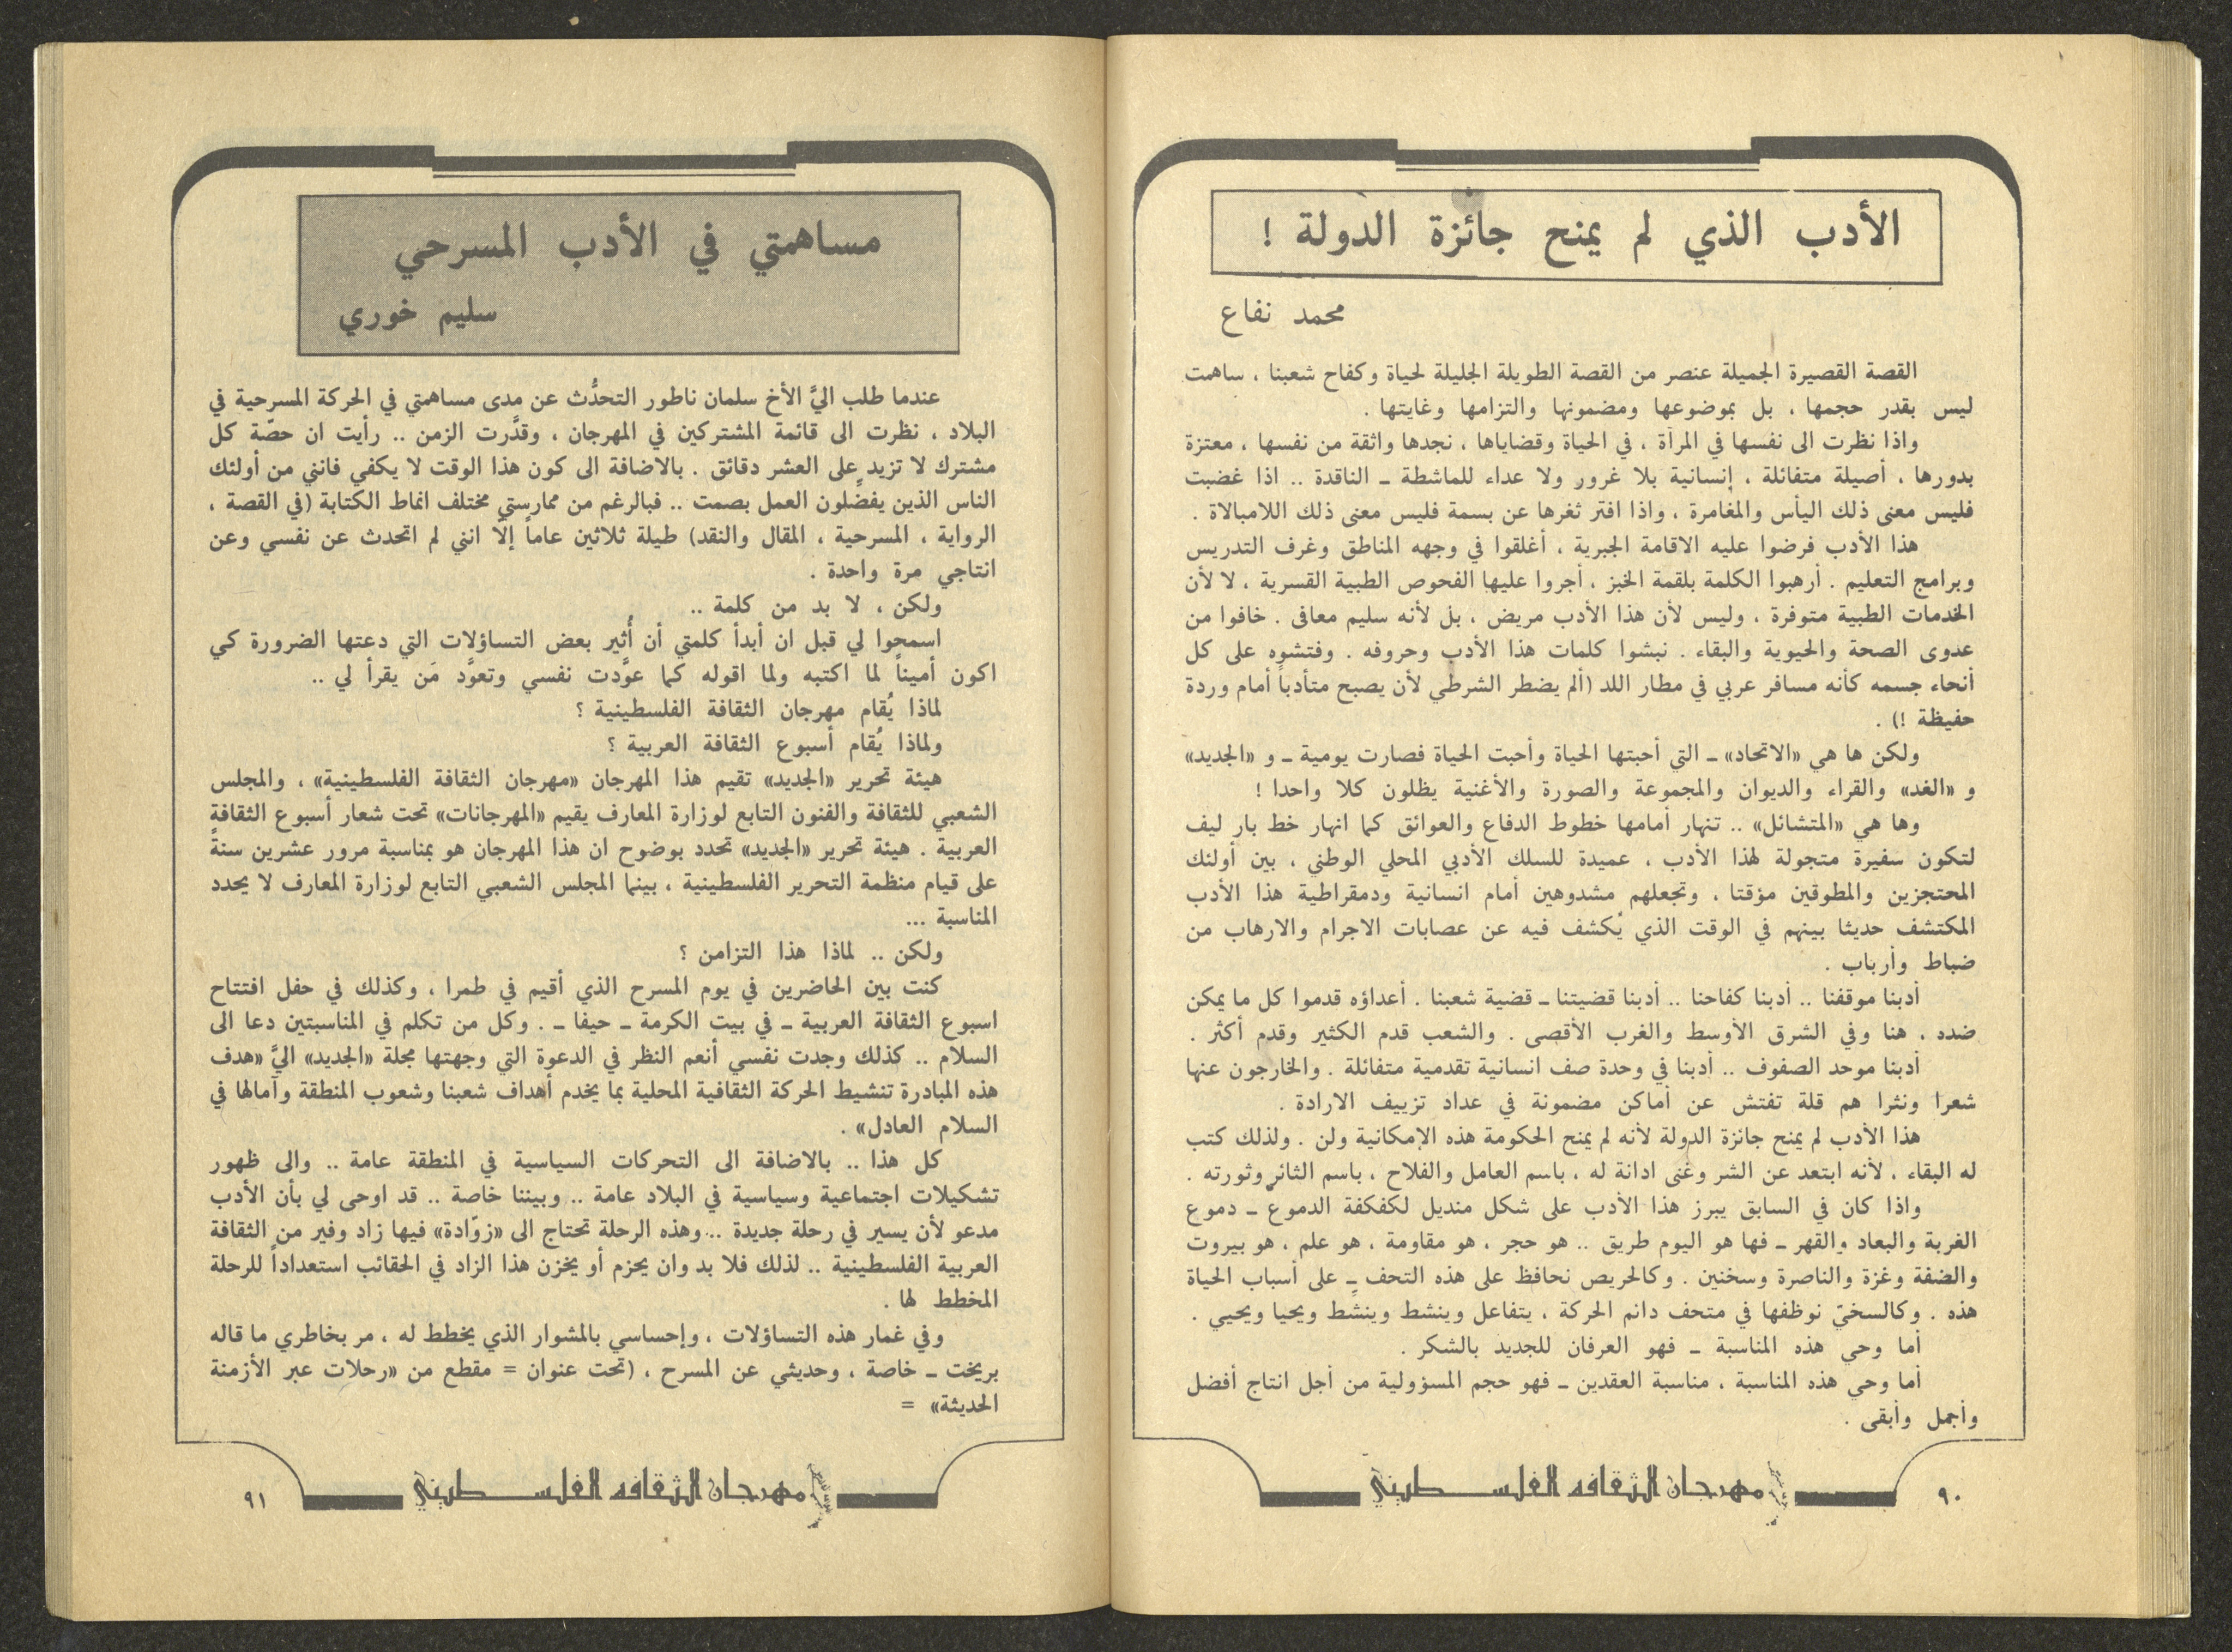 الأدب الذي لم يمنح جائزة الدولة !
محمد نفاع
القصة القصيرة الجميلة عنصر من القصة الطويلة الجليلة لحياة وكفاح شعبنا ، ساهمت
ليس بقدر حجمها ، بل بموضوعها ومضمونها والتزامها وغايتها .
واذا نظرت الى نفسها في المرآة ، في الحياة وقضاياها ، نجدها واثقة من نفسها ، معتزة
بدورها ، أصيلة متفائلة ، إنسانية بلا غرور ولا عداء للماشطة ـ الناقدة .. اذا غضبت
فليس معنى ذلك اليأس والمغامرة ، واذا افتر ثغرها عن بسمة فليس معنى ذلك اللامبالاة .
هذا الأدب فرضوا عليه الاقامة الجبرية ، أغلقوا في وجهه المناطق وغرف التدريس
وبرامج التعليم . أرهبوا الكلمة بلقمة الخبز ، أجروا عليها الفحوص الطبية القسرية ، لا لأن
الخدمات الطبية متوفرة ، وليس لأن هذا الأدب مريض ، بل لأنه سليم معافى . خافوا من
عدوى الصحة والحيوية والبقاء . نبشوا كلمات هذا الأدب وحروفه . وفتشوه على كل
أنحاء جسمه كأنه مسافر عربي في مطار اللد (ألم يضطر الشرطي لأن يصبح متأدباً أمام وردة
حفيظة !) .
ولكن ها هي «الاتحاد» ـ التي أحبتها الحياة وأحبت الحياة فصارت يومية ـ و «الجديد»
و «الغد» والقراء والديوان والمجموعة والصورة والأغنية يظلون كلا واحدا !
وها هي «المتشائل» .. تنهار أمامها خطوط الدفاع والعوائق كما انهار خط بار ليف
لتكون سفيرة متجولة لهذا الأدب ، عميدة للسلك الأدبي المحلي الوطني ، بين أولئك
المحتجزين والمطوقين مؤقتا ، وتجعلهم مشدوهين أمام انسانية ودمقراطية هذا الأدب
المكتشف حديثا بينهم في الوقت الذي يُكشف فيه عن عصابات الاجرام والارهاب من
ضباط وأرباب .
أدبنا موقفنا .. أدبنا كفاحنا .. أدبنا قضيتنا ـ قضية شعبنا . أعداؤه قدموا كل ما يمكن
ضده ، هنا وفي الشرق الأوسط والغرب الأقصى . والشعب قدم الكثير وقدم أكثر .
أدبنا موحد الصفوف .. أدبنا في وحدة صف انسانية تقدمية متفائلة . والخارجون عنها
شعرا ونثرا هم قلة تفتش عن أماكن مضمونة في عداد تزييف الارادة .
هذا الأدب لم يمنح جائزة الدولة لأنه لم يمنح الحكومة هذه الإمكانية ولن . ولذلك كتب
له البقاء ، لأنه ابتعد عن الشر وغنى ادانة له ، باسم العامل والفلاح ، باسم الثائر وثورته .
واذا كان في السابق يبرز هذا الأدب على شكل منديل لكفكفة الدموع ـ دموع
الغربة والبعاد والقهر ـ فها هو اليوم طريق .. هو حجر ، هو مقاومة ، هو علم ، هو بيروت
والضفة وغزة والناصرة وسخنين . وكالحريص نحافظ على هذه التحف ـ على أسباب الحياة
هذه . وكالسخيّ نوظفها في متحف دائم الحركة ، يتفاعل وينشط وينشِّط ويحيا ويحيي .
أما وحي هذه المناسبة ـ فهو العرفان للجديد بالشكر .
أما وحي هذه المناسبة ، مناسبة العقدين ـ فهو حجم المسؤولية من أجل انتاج أفضل
وأجمل وأبقى .
مهرجان الثقافه الفلسطيني
٩٠
مساهمتي في الأدب المسرحي
سليم خوري
عندما طلب اليَّ الأخ سلمان ناطور التحدُّث عن مدى مساهمتي في الحركة المسرحية في
البلاد ، نظرت الى قائمة المشتركين في المهرجان ، وقدَّرت الزمن .. رأيت ان حصّة كل
مشترك لا تزيد على العشر دقائق . بالاضافة الى كون هذا الوقت لا يكفي فانني من أولئك
الناس الذين يفضِّلون العمل بصمت .. فبالرغم من ممارستي مختلف انماط الكتابة (في القصة ،
الرواية ، المسرحية ، المقال والنقد) طيلة ثلاثين عاماً إلاّ انني لم اتحدث عن نفسي وعن
انتاجي مرة واحدة .
ولكن ، لا بد من كلمة ..
اسمحوا لي قبل ان أبدأ كلمتي أن أُثير بعض التساؤلات التي دعتها الضرورة كي
اكون أميناً لما اكتبه ولما اقوله كما عوَّدت نفسي وتعوَّد مَن يقرأ لي ..
لماذا يُقام مهرجان الثقافة الفلسطينية ؟
ولماذا يُقام أسبوع الثقافة العربية ؟
هيئة تحرير «الجديد» تقيم هذا المهرجان «مهرجان الثقافة الفلسطينية» ، والمجلس
الشعبي للثقافة والفنون التابع لوزارة المعارف يقيم «المهرجانات» تحت شعار أسبوع الثقافة
العربية . هيئة تحرير «الجديد» تحدد بوضوح ان هذا المهرجان هو بمناسبة مرور عشرين سنةً
على قيام منظمة التحرير الفلسطينية ، بينما المجلس الشعبي التابع لوزارة المعارف لا يحدد
المناسبة ...
ولكن .. لماذا هذا التزامن ؟
كنت بين الحاضرين في يوم المسرح الذي أقيم في طمرا ، وكذلك في حفل افتتاح
اسبوع الثقافة العربية ـ في بيت الكرمة ـ حيفا ـ . وكل من تكلم في المناسبتين دعا الى
السلام .. كذلك وجدت نفسي أنعم النظر في الدعوة التي وجهتها مجلة «الجديد» اليَّ «هدف
هذه المبادرة تنشيط الحركة الثقافية المحلية بما يخدم أهداف شعبنا وشعوب المنطقة وآمالها في
السلام العادل» .
كل هذا .. بالاضافة الى التحركات السياسية في المنطقة عامة .. والى ظهور
تشكيلات اجتماعية وسياسية في البلاد عامة .. وبيننا خاصة .. قد اوحى لي بأن الأدب
مدعو لأن يسير في رحلة جديدة .. وهذه الرحلة تحتاج الى «زوّادة» فيها زاد وفير من الثقافة
العربية الفلسطينية .. لذلك فلا بد وان يحزم أو يخزن هذا الزاد في الحقائب استعداداً للرحلة
المخطط لها .
وفي غمار هذه التساؤلات ، وإحساسي بالمشوار الذي يخطط له ، مر بخاطري ما قاله
بريخت ـ خاصة ، وحديثي عن المسرح ، (تحت عنوان = مقطع من «رحلات عبر الأزمنة
الحديثة» =
مهرجان الثقافه الفلسطيني
٩١